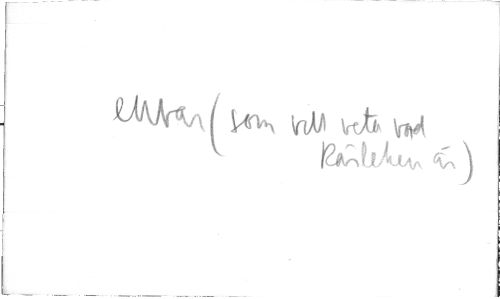 envar (som vill veta vad
kärleken är)